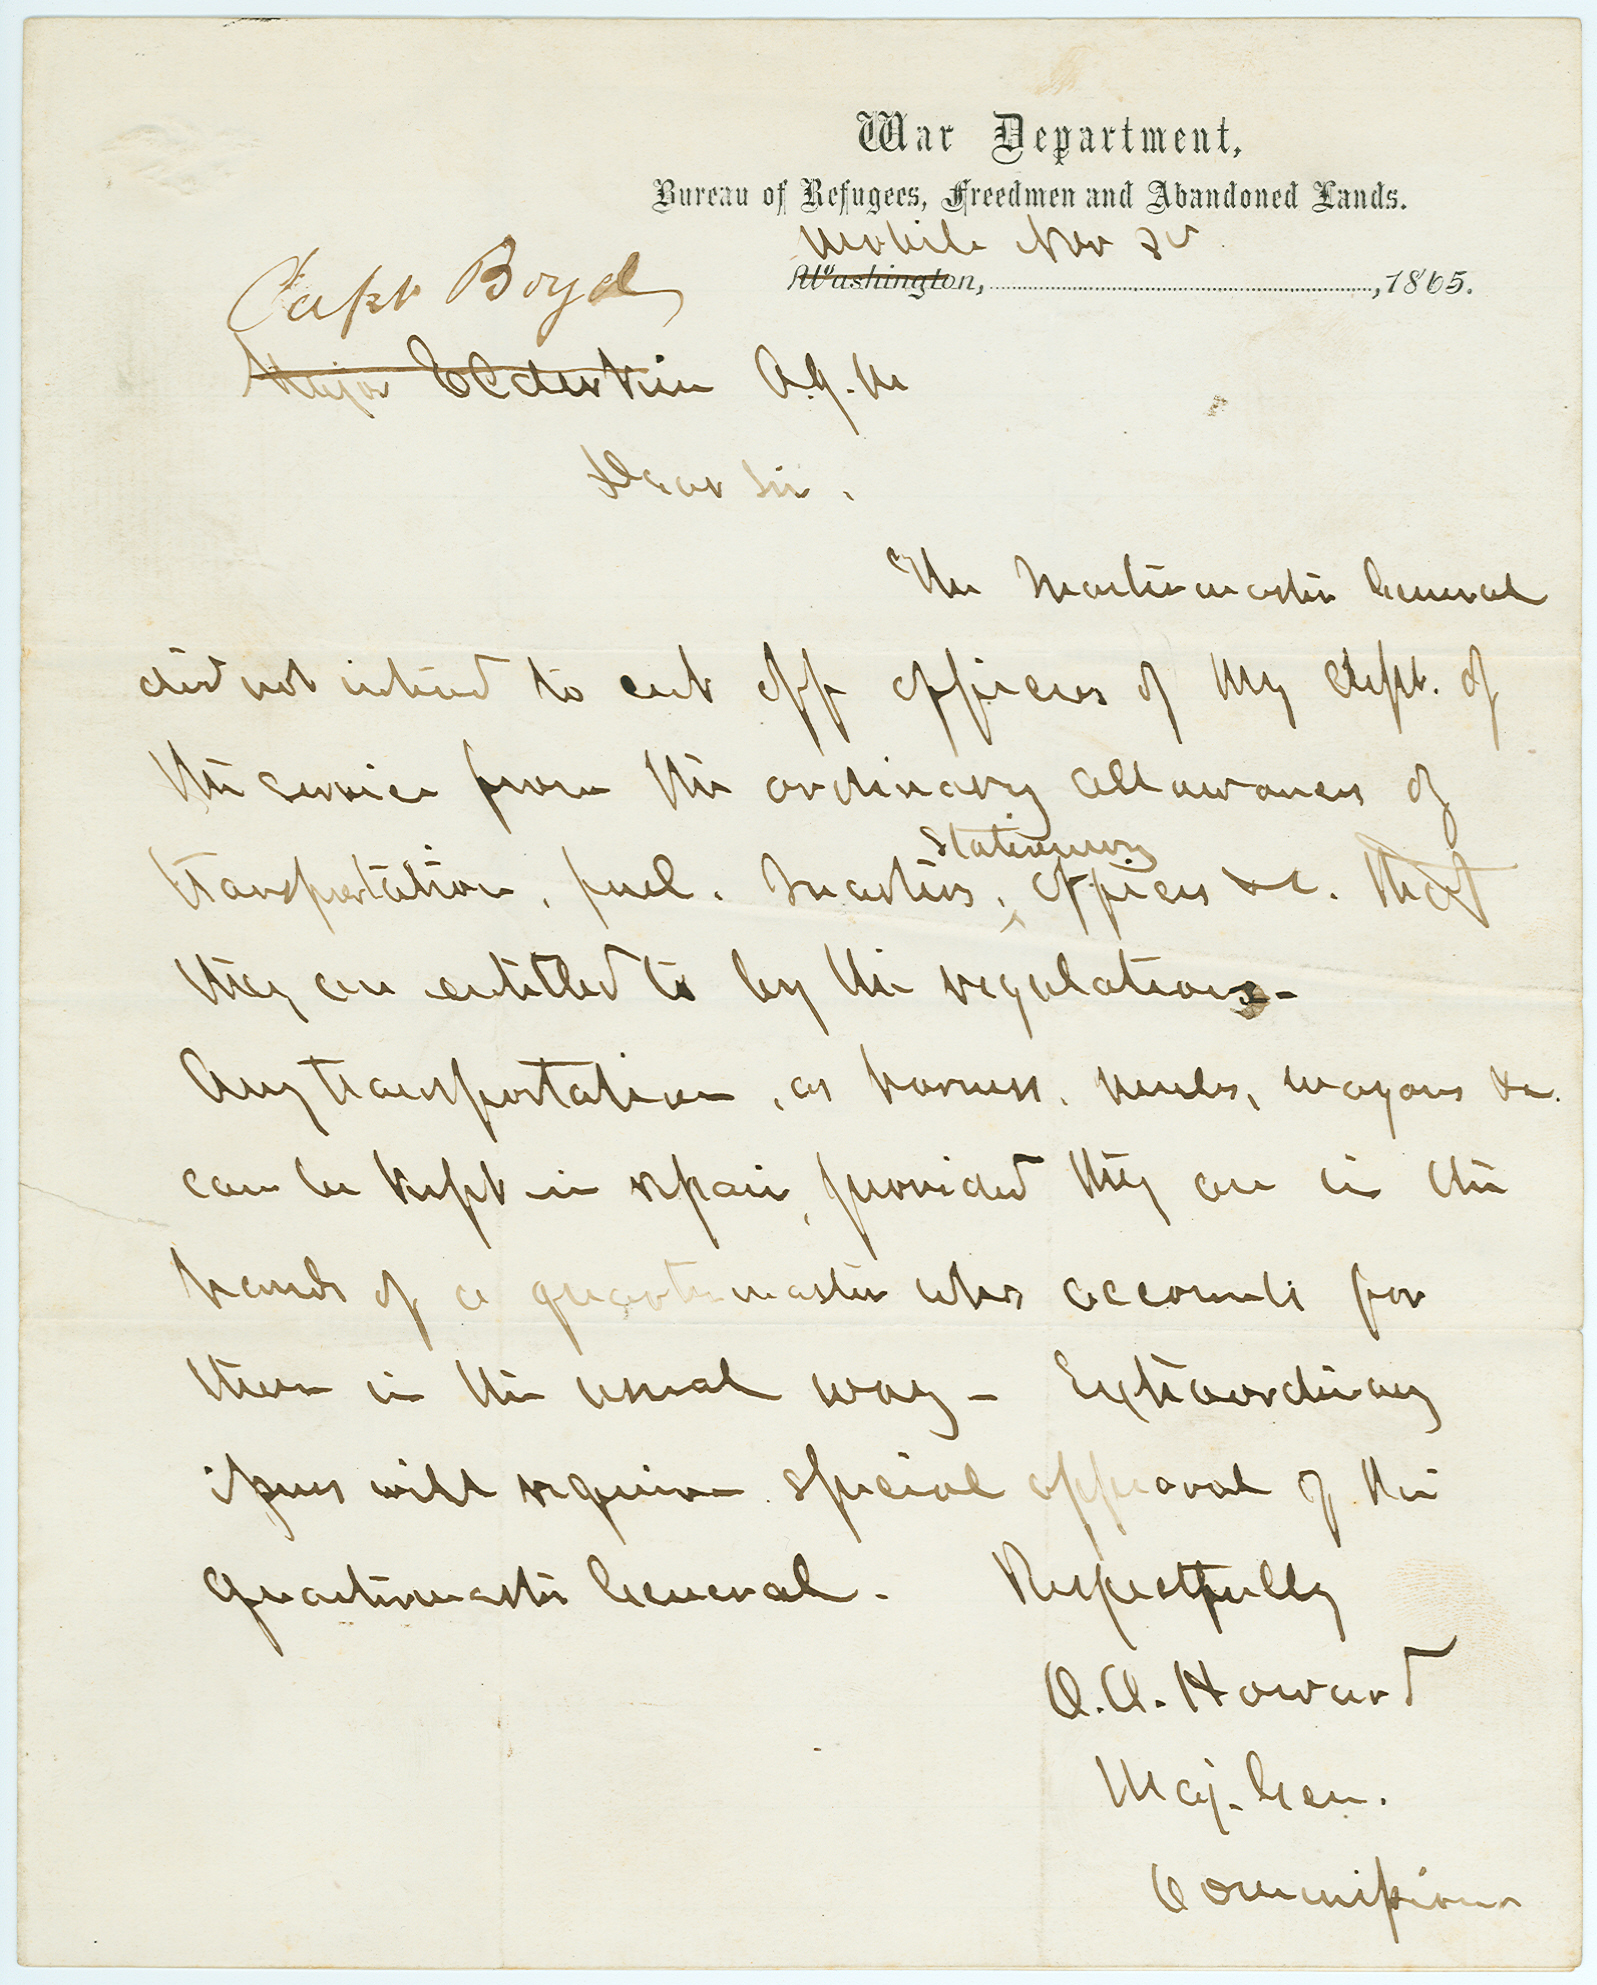 War Department,
Bureau of Refugees, Freedmen and Abandoned Lands.
Mobile Nov
Washington, , 1865.
Capt Boyd
Major Elderkin A.Q.M
Dear Sir.
The Quartermaster General
did not intend to cut off officers of my dept. of
the service from the ordinary allowances of
Stationery
transportation, fuel. Quarters, offices &c. that
they are entitled to by the regulations-
Any transportation, as harness, mules, wagons &c.
can be kept in repair, provided they are in the
hands of a quartermaster who accounts for
them in the usual way - Extraordinary
issues will require special approval of the
Quartermaster General. Respectfully
O.O. Howard
Maj. Gen.
Commissioner